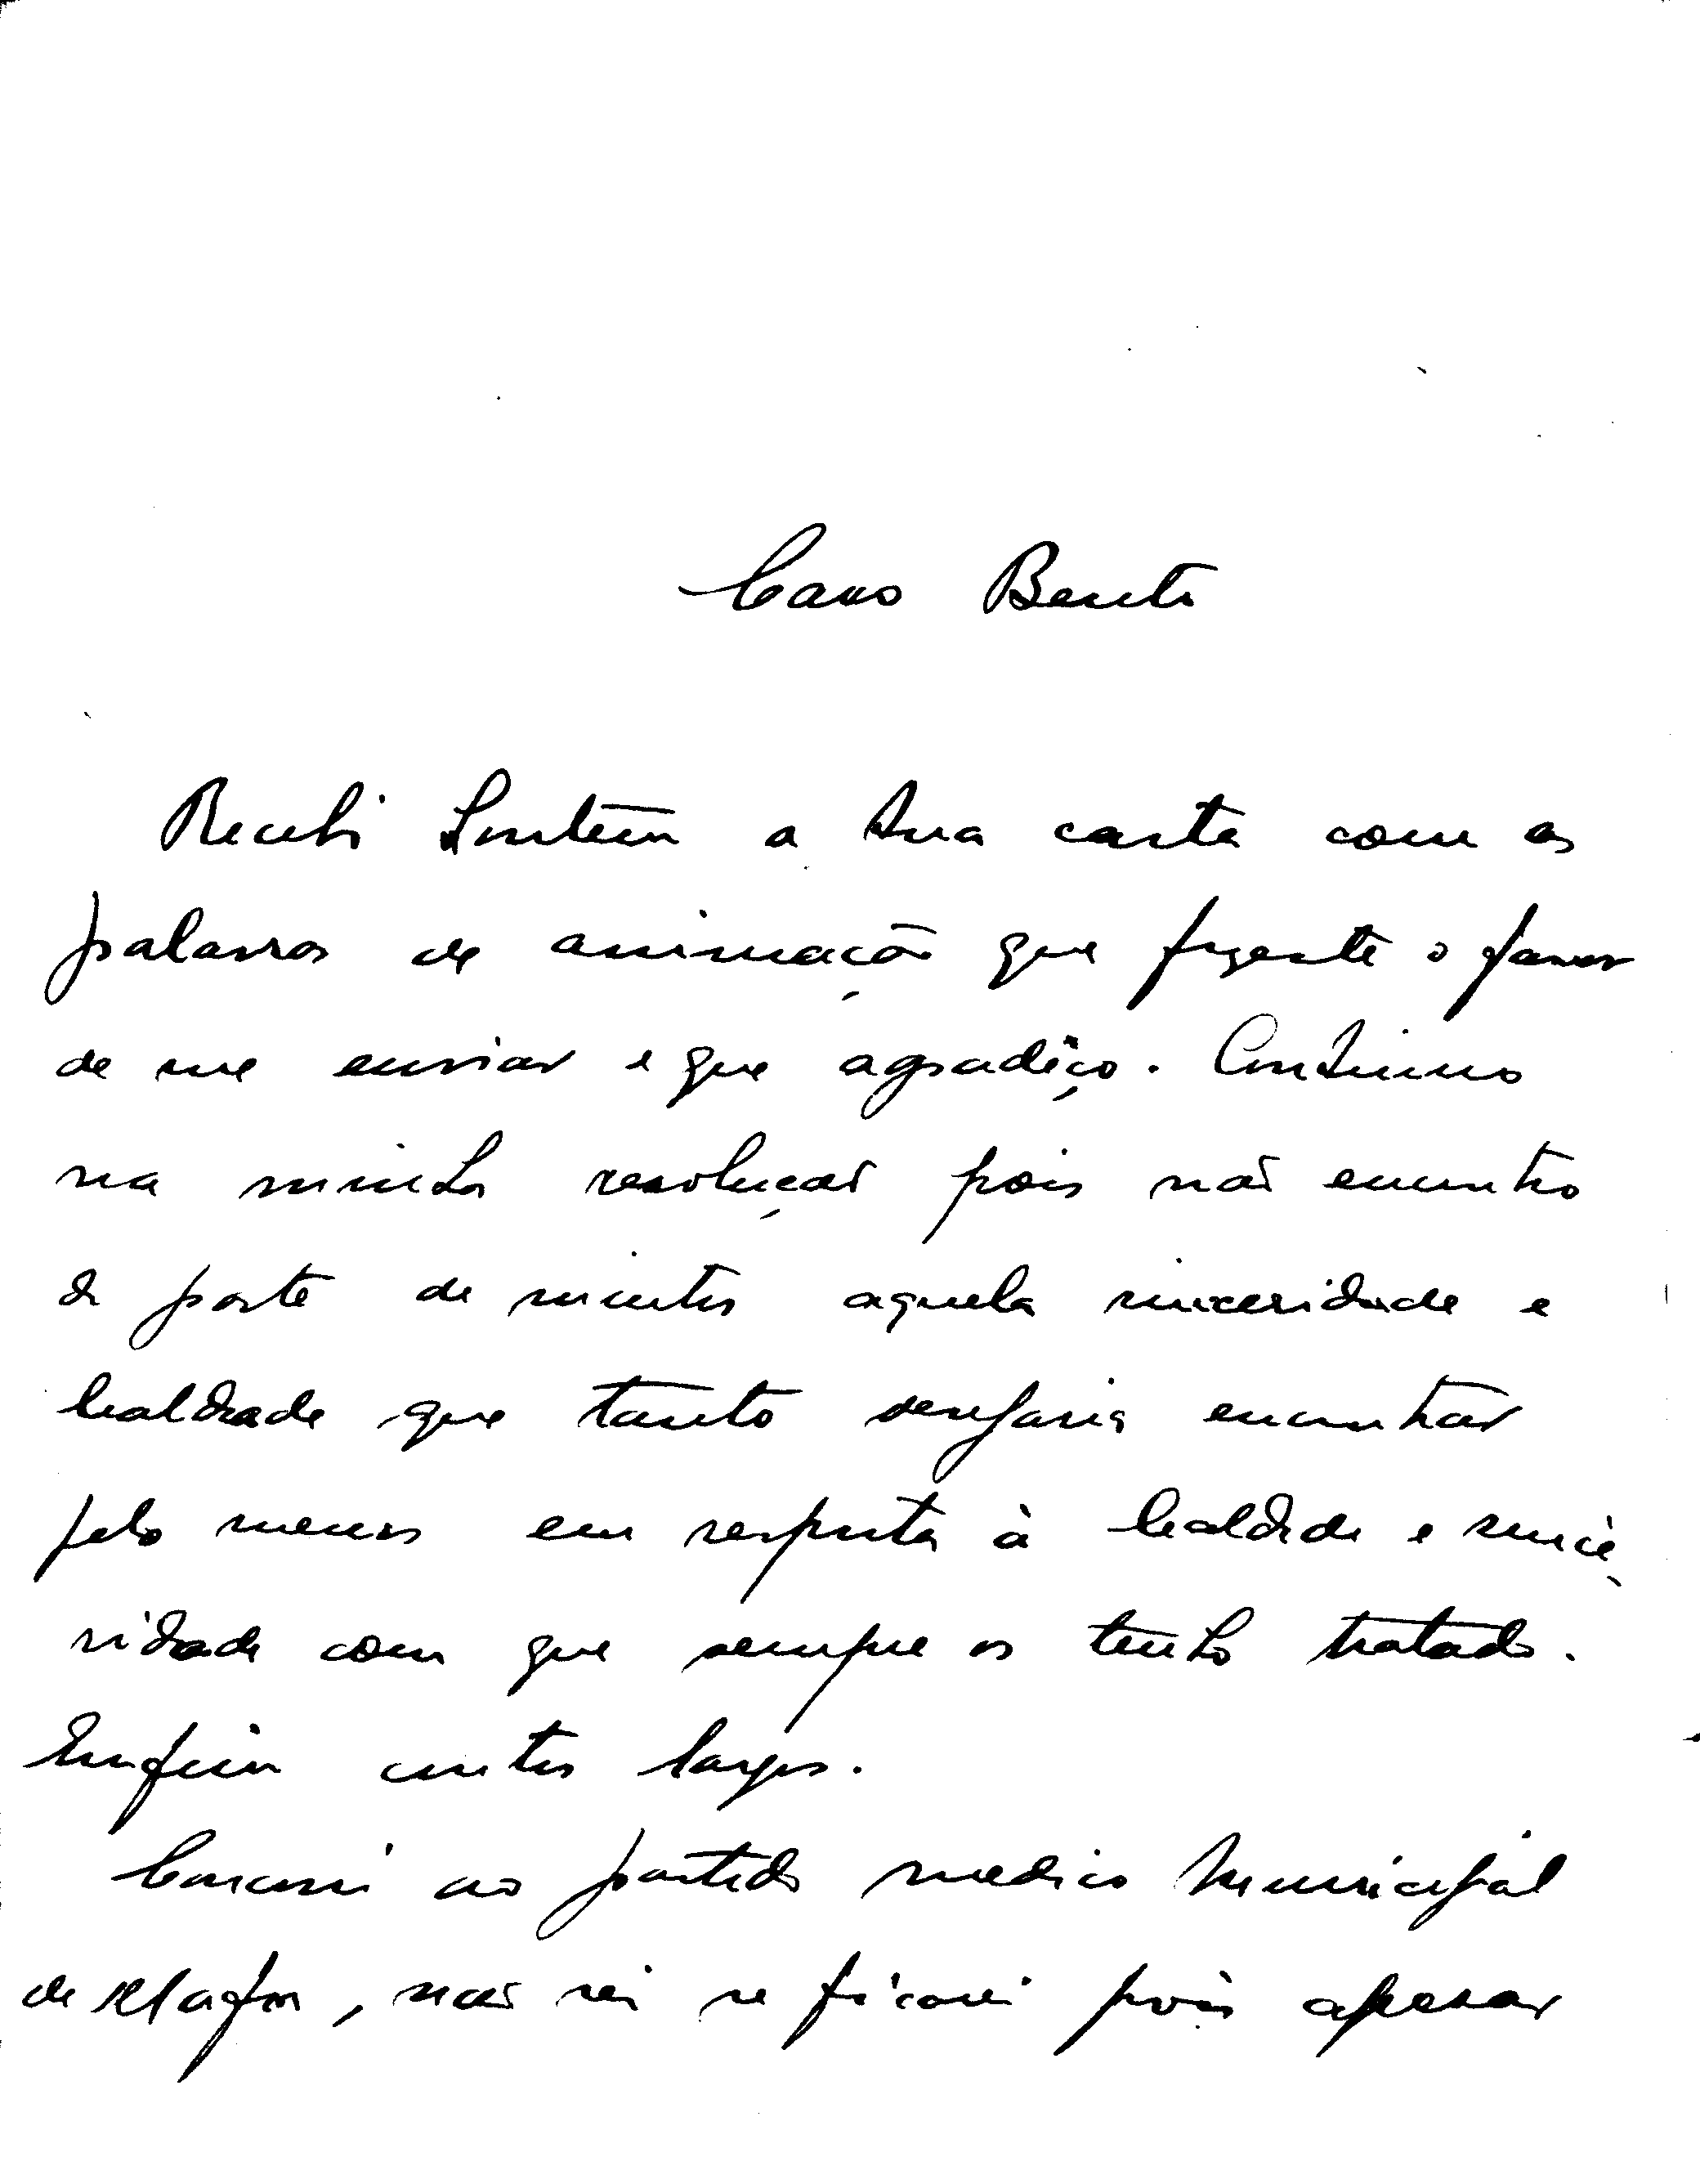 Caro Bento
Recebi hontem a tua carta com as
palavras de animação que fizeste o favor
de me enviar e que agradêço. Continuo
na minha resolução pois não encontro
da parte de muitos aquela sinceridade e
lealdade que tanto desejaria encontrar
pelo menos em resposta à lealdade e since
ridade com que sempre os tenho tratado.
Emfim contos largos.
Concorri ao partido medico Municipal
de Mafra, não sei se ficarei pois apesar